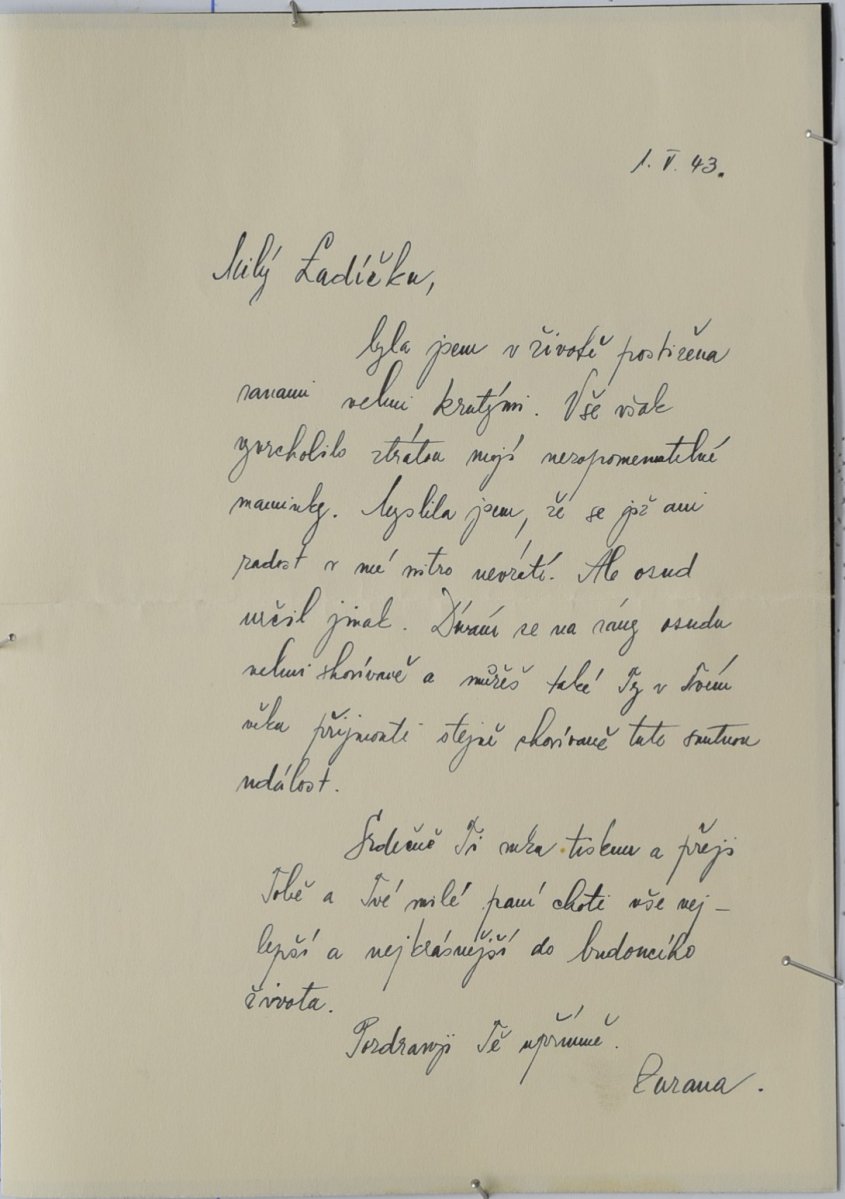 1. V. 43.
Milý Ladíčku,
byla jsem v životě postižena
ranami velmi krutými. Vše však
vyvrcholilo ztrátou mojí nezapomenutelné
maminky. Myslila jsem, že se již ani
radost v mé nitro nevrátí. Ale osud
určil jinak. Dívám se na rány osudu
velmi shovívavě a můžeš také Ty v Tvém
věku přijmouti stejně shovívavě tuto smutnou
událost.
Srdečně Ti ruku tisknu a přeji
Tobě a Tvé milé paní choti vše nej-
lepší a nejkrásnější do budoucího
života.
Pozdravuji Tě upřímně.